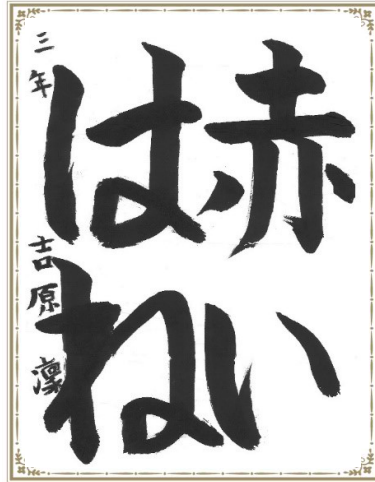 赤い
はね
三年 吉原 凜